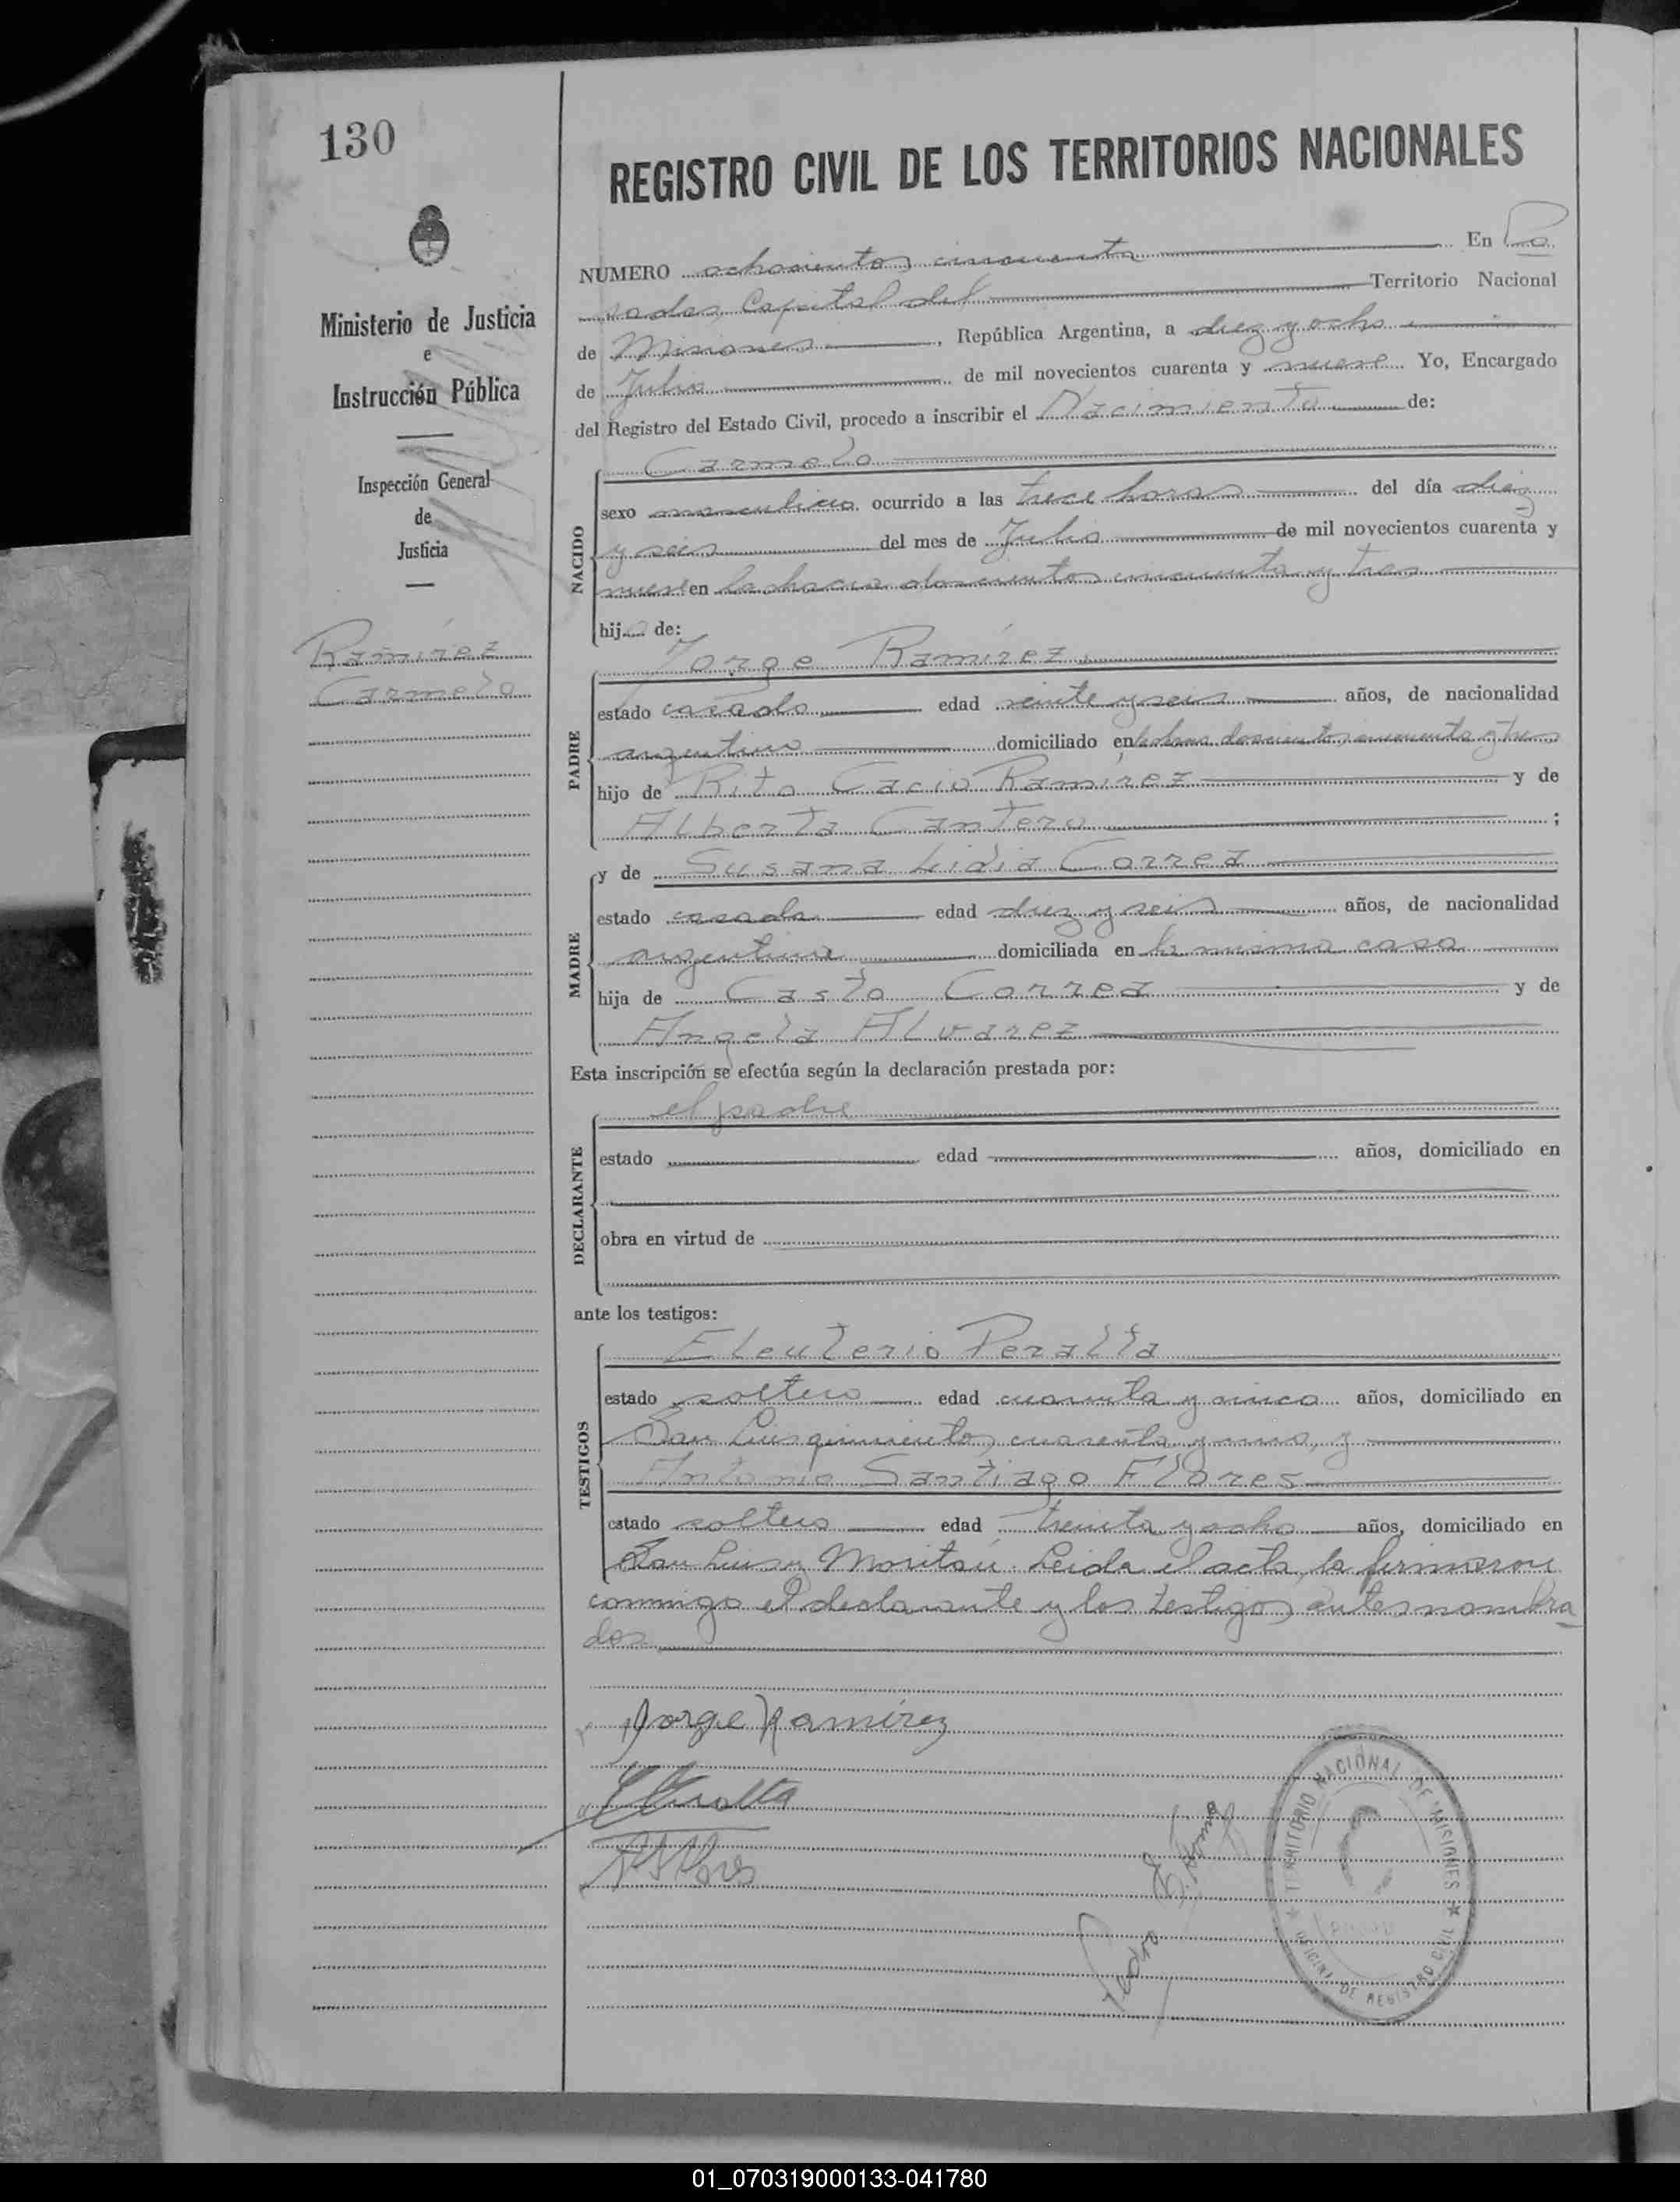 130
REGISTRO CIVIL DE LOS TERRITORIOS NACIONALES
NUMERO ochocientos cincuenta En Po
sadas, Capital del Territorio Nacional
de Misiones, República Argentina, a diez y ocho
de Julio de mil novecientos cuarenta y nueve Yo, Encargado
del Registro del Estado Civil, procedo a inscribir el Nacimiento de:
Ministerio de Justicia
e
Instrucción Pública
Inspección General
de
Justicia
Ramírez
Carmelo
NACIDO
Carmelo
sexo masculino ocurrido a las trece horas del día diez
y seis del mes de Julio de mil novecientos cuarenta y
nueve en la chacra doscientos cincuenta y tres
hijo de:
PADRE
Jorge Ramírez
estado casado edad veinte y seis años, de nacionalidad
argentino domiciliado en la chacra doscientos cincuenta y tres
hijo de Rito Ramírez y de
Alberta Cantero ;
MADRE
y de Susana Lidia Correa
estado casada edad diez y seis años, de nacionalidad
argentina domiciliada en la misma casa
hija de Casto Correa y de
Angela Alvarez
Esta inscripción se efectúa según la declaración prestada por:
DECLARANTE
el padre
estado edad años, domiciliado en
obra en virtud de
ante los testigos:
TESTIGOS
Eleuterio Peralta
estado soltero edad cuarenta y cinco años, domiciliado en
San Luis quinientos cuarenta y uno, y
Antonio Santiago Flores
estado soltero edad treinta y ocho años, domiciliado en
San Luis y Moritán. Leida el acta, la firmaron
conmigo el declarante y los testigos antes nombra
dos
Jorge Ramírez
EPeralta
ASFlores
Pedro
TERRITORIO NACIONAL DE MISIONES
OFICINA DE REGISTRO CIVIL
01_070319000133-041780